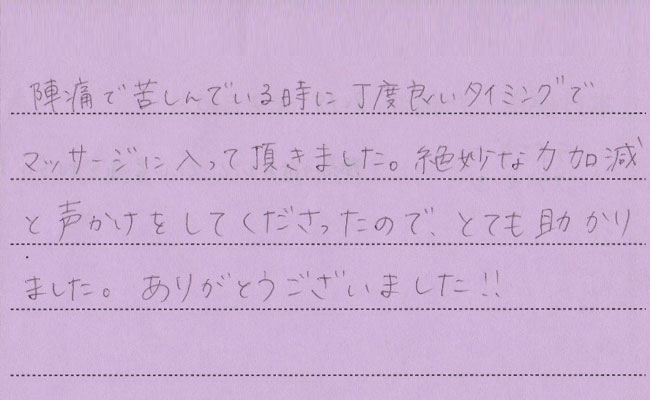 陣痛で苦しんでいる時に丁度良いタイミングで
マッサージに入って頂きました。絶妙な力加減
と声かけをしてくださったので、とても助かり
ました。ありがとうございました!!